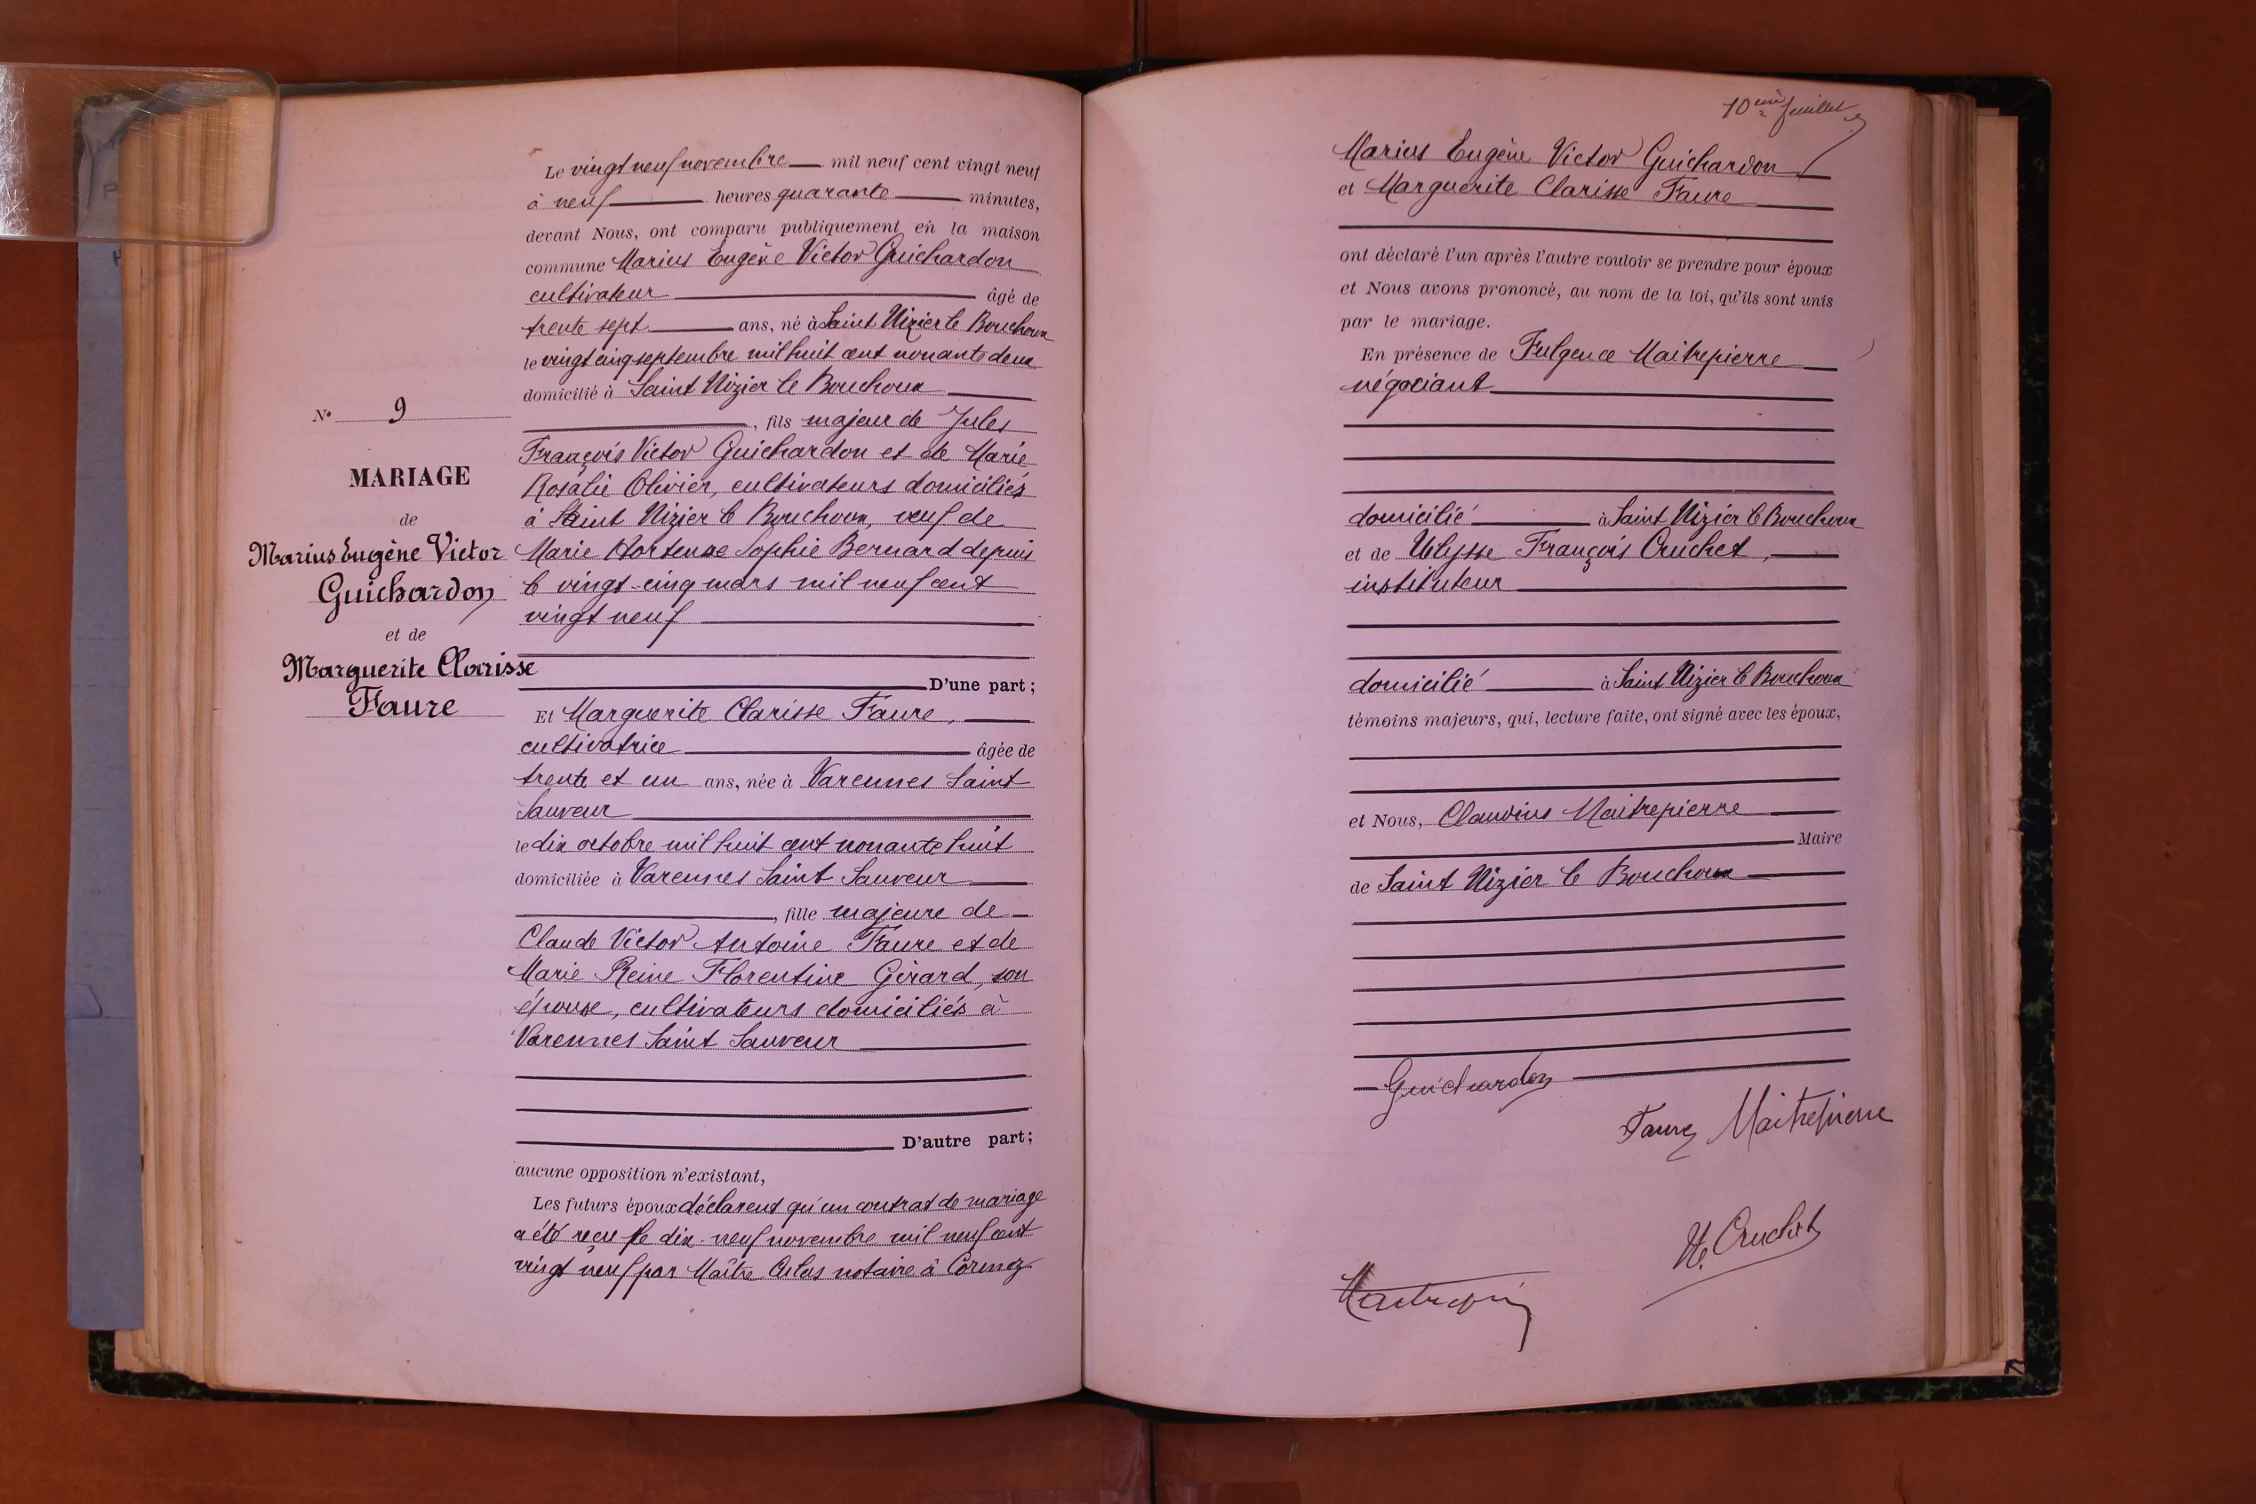 N° 9
MARIAGE
de
Marius Eugène Victor
Guichardon
et de
Marguerite Clarisse
Faure
Le vingt neuf novembre mil neuf cent vingt neuf
à neuf heures quarante minutes,
devant Nous, ont comparu publiquement en la maison
commune Marius Eugène Victor Guichardon
cultivateur âgé de
trente sept ans, né à Saint Nizier le Bouchoux
le vingt cinq septembre mil huit cent nonante deux
domicilié à Saint Nizier le Bouchoux
, fils majeur de Jules
François Victor Guichardon et de Marie
Rosalie Olivier, cultivateurs domiciliés
à Saint Nizier le Bouchoux, veuf de
Marie Hortense Sophie Bernard depuis
le vingt-cinq mars mil neuf cent
vingt neuf
D'une part;
Et Marguerite Clarisse Faure,
cultivatrice âgée de
trente et un ans, née à Varennes Saint
Sauveur
le dix octobre mil huit cent nonante huit
domiciliée à Varennes Saint Sauveur
, fille majeure de
Claude Victor Antoine Faure et de
Marie Reine Florentine Gérard, son
épouse, cultivateurs domiciliés à
Varennes Saint Sauveur
D'autre part;
aucune opposition n'existant,
Les futurs époux déclarent qu'un contrat de mariage
a été reçu le dix-neuf novembre mil neuf cent
vingt neuf par Maître notaire à Cormoz
10ème feuillet
Marius Eugène Victor Guichardon
et Marguerite Clarisse Faure
ont déclaré l'un après l'autre vouloir se prendre pour époux
et Nous avons prononcé, au nom de la loi, qu'ils sont unis
par le mariage.
En présence de Fulgence Maitrepierre
négociant
domicilié à Saint Nizier le Bouchoux
et de Ulysse François Cruchet,
instituteur
domicilié à Saint Nizier le Bouchoux
témoins majeurs, qui, lecture faite, ont signé avec les époux,
et Nous, Claudius Maitrepierre
Maire
de Saint Nizier le Bouchoux
Guichardon
Faure Maitrepierre
U. Cruchet
Maitrepierre